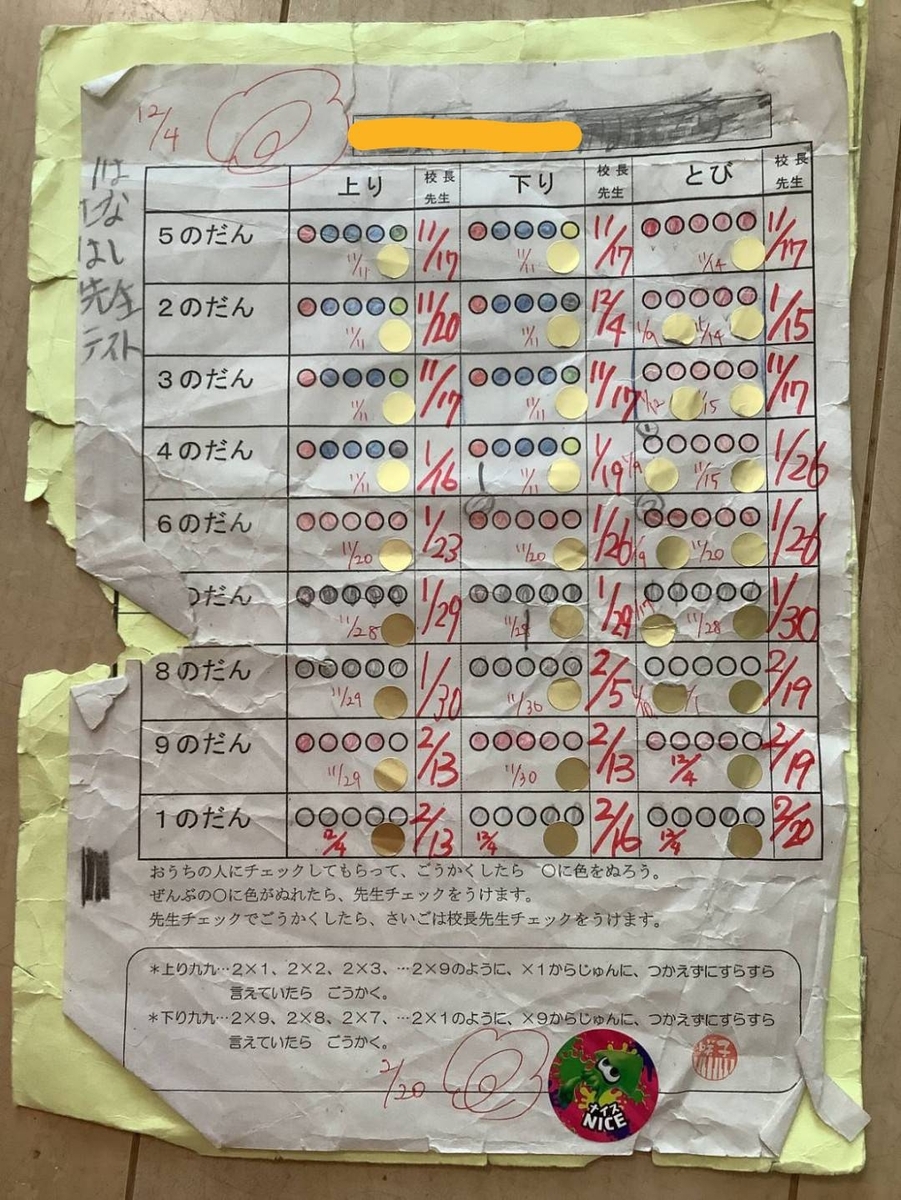 12/4
はなはし
先生
テスト
上り 校長先生 下り 校長先生 とび 校長先生
5のだん 11/11 11/17 11/11 11/17 11/14 11/17
2のだん 11/11 11/20 11/11 12/4 1/9 11/14 1/15
3のだん 11/11 11/17 11/11 11/17 1/12 11/15 11/17
4のだん 11/11 1/16 11/11 1/19 1/9 11/15 1/26
6のだん 11/20 1/23 11/20 1/26 1/9 11/20 1/26
のだん 11/28 1/29 11/28 1/29 11/28 1/30
8のだん 11/29 1/30 11/30 2/5 2/19
9のだん 11/29 2/13 11/30 2/13 12/4 2/19
1のだん 12/4 2/13 12/4 2/16 12/4 2/20
おうちの人にチェックしてもらって、ごうかくしたら 〇に色をぬろう。
ぜんぶの〇に色がぬれたら、先生チェックをうけます。
先生チェックでごうかくしたら、さいごは校長先生チェックをうけます。
*上り九九…2×1、2×2、2×3、…2×9のように、×1からじゅんに、つかえずにすらすら
言えていたら ごうかく。
*下り九九…2×9、2×8、2×7、…2×1のように、×9からじゅんに、つかえずにすらすら
言えていたら ごうかく。
2/20
ナイス
NICE